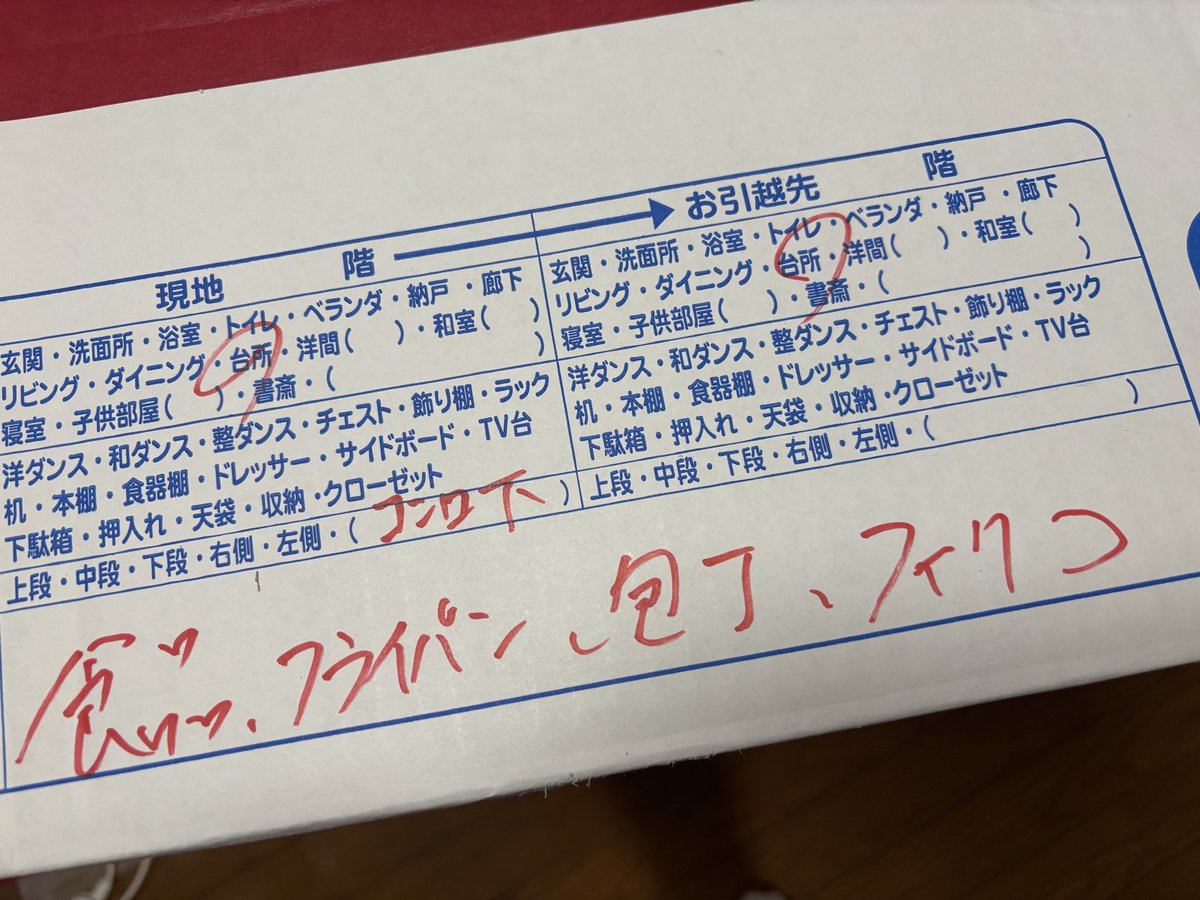 現地 階
お引越先 階
玄関・洗面所・浴室・トイレ・ベランダ・納戸・廊下
リビング・ダイニング・台所・洋間( )・和室( )
寝室・子供部屋( )・書斎・( )
洋ダンス・和ダンス・整ダンス・チェスト・飾り棚・ラック
机・本棚・食器棚・ドレッサー・サイドボード・TV台
下駄箱・押入れ・天袋・収納・クローゼット
上段・中段・下段・右側・左側・( コンロ下 )
玄関・洗面所・浴室・トイレ・ベランダ・納戸・廊下
リビング・ダイニング・台所・洋間( )・和室( )
寝室・子供部屋( )・書斎・( )
洋ダンス・和ダンス・整ダンス・チェスト・飾り棚・ラック
机・本棚・食器棚・ドレッサー・サイドボード・TV台
下駄箱・押入れ・天袋・収納・クローゼット
上段・中段・下段・右側・左側・( )
フライパン、包丁、